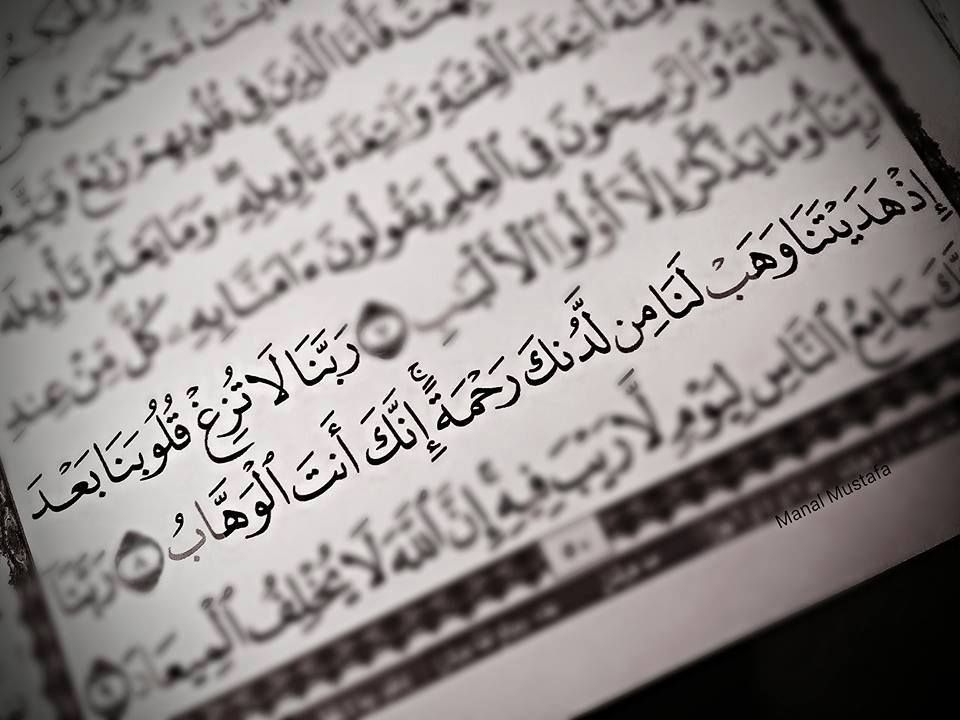 مُّحْكَمَٰتٌ هُنَّ
فَأَمَّا ٱلَّذِينَ فِى قُلُوبِهِمْ زَيْغٌ
ٱبْتِغَآءَ ٱلْفِتْنَةِ وَٱبْتِغَآءَ تَأْوِيلِهِۦ وَمَا يَعْلَمُ تَأْوِيلَهُ
إِلَّا ٱللَّهُ وَٱلرَّٰسِخُونَ فِى ٱلْعِلْمِ يَقُولُونَ ءَامَنَّا بِهِۦ كُلٌّ مِّنْ عِندِ
رَبِّنَا وَمَا يَذَّكَّرُ إِلَّآ أُو۟لُوا۟ ٱلْأَلْبَٰبِ ٧ رَبَّنَا لَا تُزِغْ قُلُوبَنَا بَعْدَ
إِذْ هَدَيْتَنَا وَهَبْ لَنَا مِن لَّدُنكَ رَحْمَةً ۚ إِنَّكَ أَنتَ ٱلْوَهَّابُ ٨ رَبَّنَآ
جَامِعُ ٱلنَّاسِ لِيَوْمٍ لَّا رَيْبَ فِيهِ ۚ إِنَّ ٱللَّهَ لَا يُخْلِفُ ٱلْمِيعَادَ ٩
٥٠
Manal Mustafa